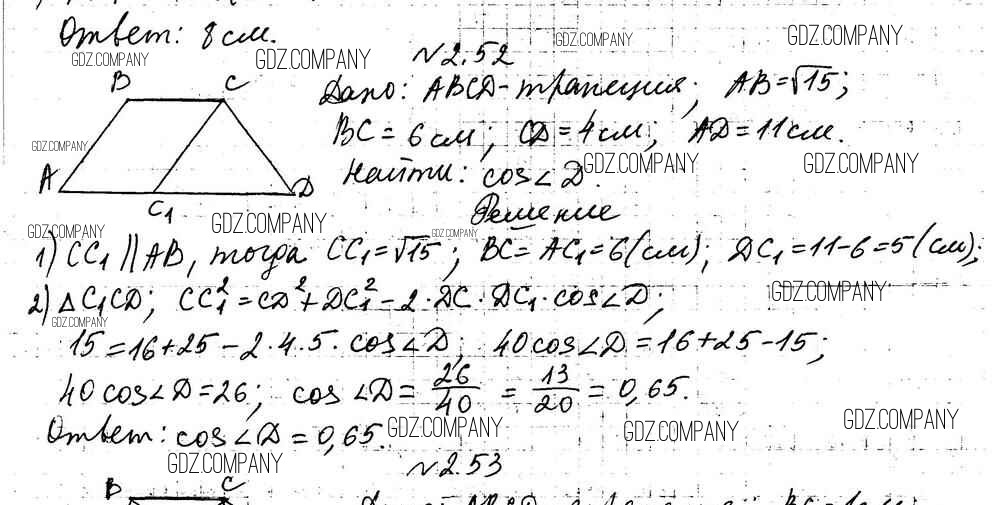 Ответ: 8 см.
GDZ.COMPANY GDZ.COMPANY GDZ.COMPANY GDZ.COMPANY
№2.52
B C
Дано: ABCD-трапеция; AB=√15;
BC=6 см; CD=4 см; AD=11 см.
GDZ.COMPANY GDZ.COMPANY GDZ.COMPANY
Найти: cos∠D.
A C₁ D
GDZ.COMPANY GDZ.COMPANY GDZ.COMPANY
Решение
1) CC₁ || AB, тогда CC₁=√15; BC=AC₁=6(см); DC₁=11-6=5(см);
2) ΔC₁CD; CC₁²=CD²+DC₁²-2·DC·DC₁·cos∠D;
GDZ.COMPANY GDZ.COMPANY
15=16+25-2·4·5·cos∠D; 40cos∠D=16+25-15;
40cos∠D=26; cos∠D=26/40=13/20=0,65.
Ответ: cos∠D=0,65.
GDZ.COMPANY GDZ.COMPANY GDZ.COMPANY
GDZ.COMPANY
№2.53
B C